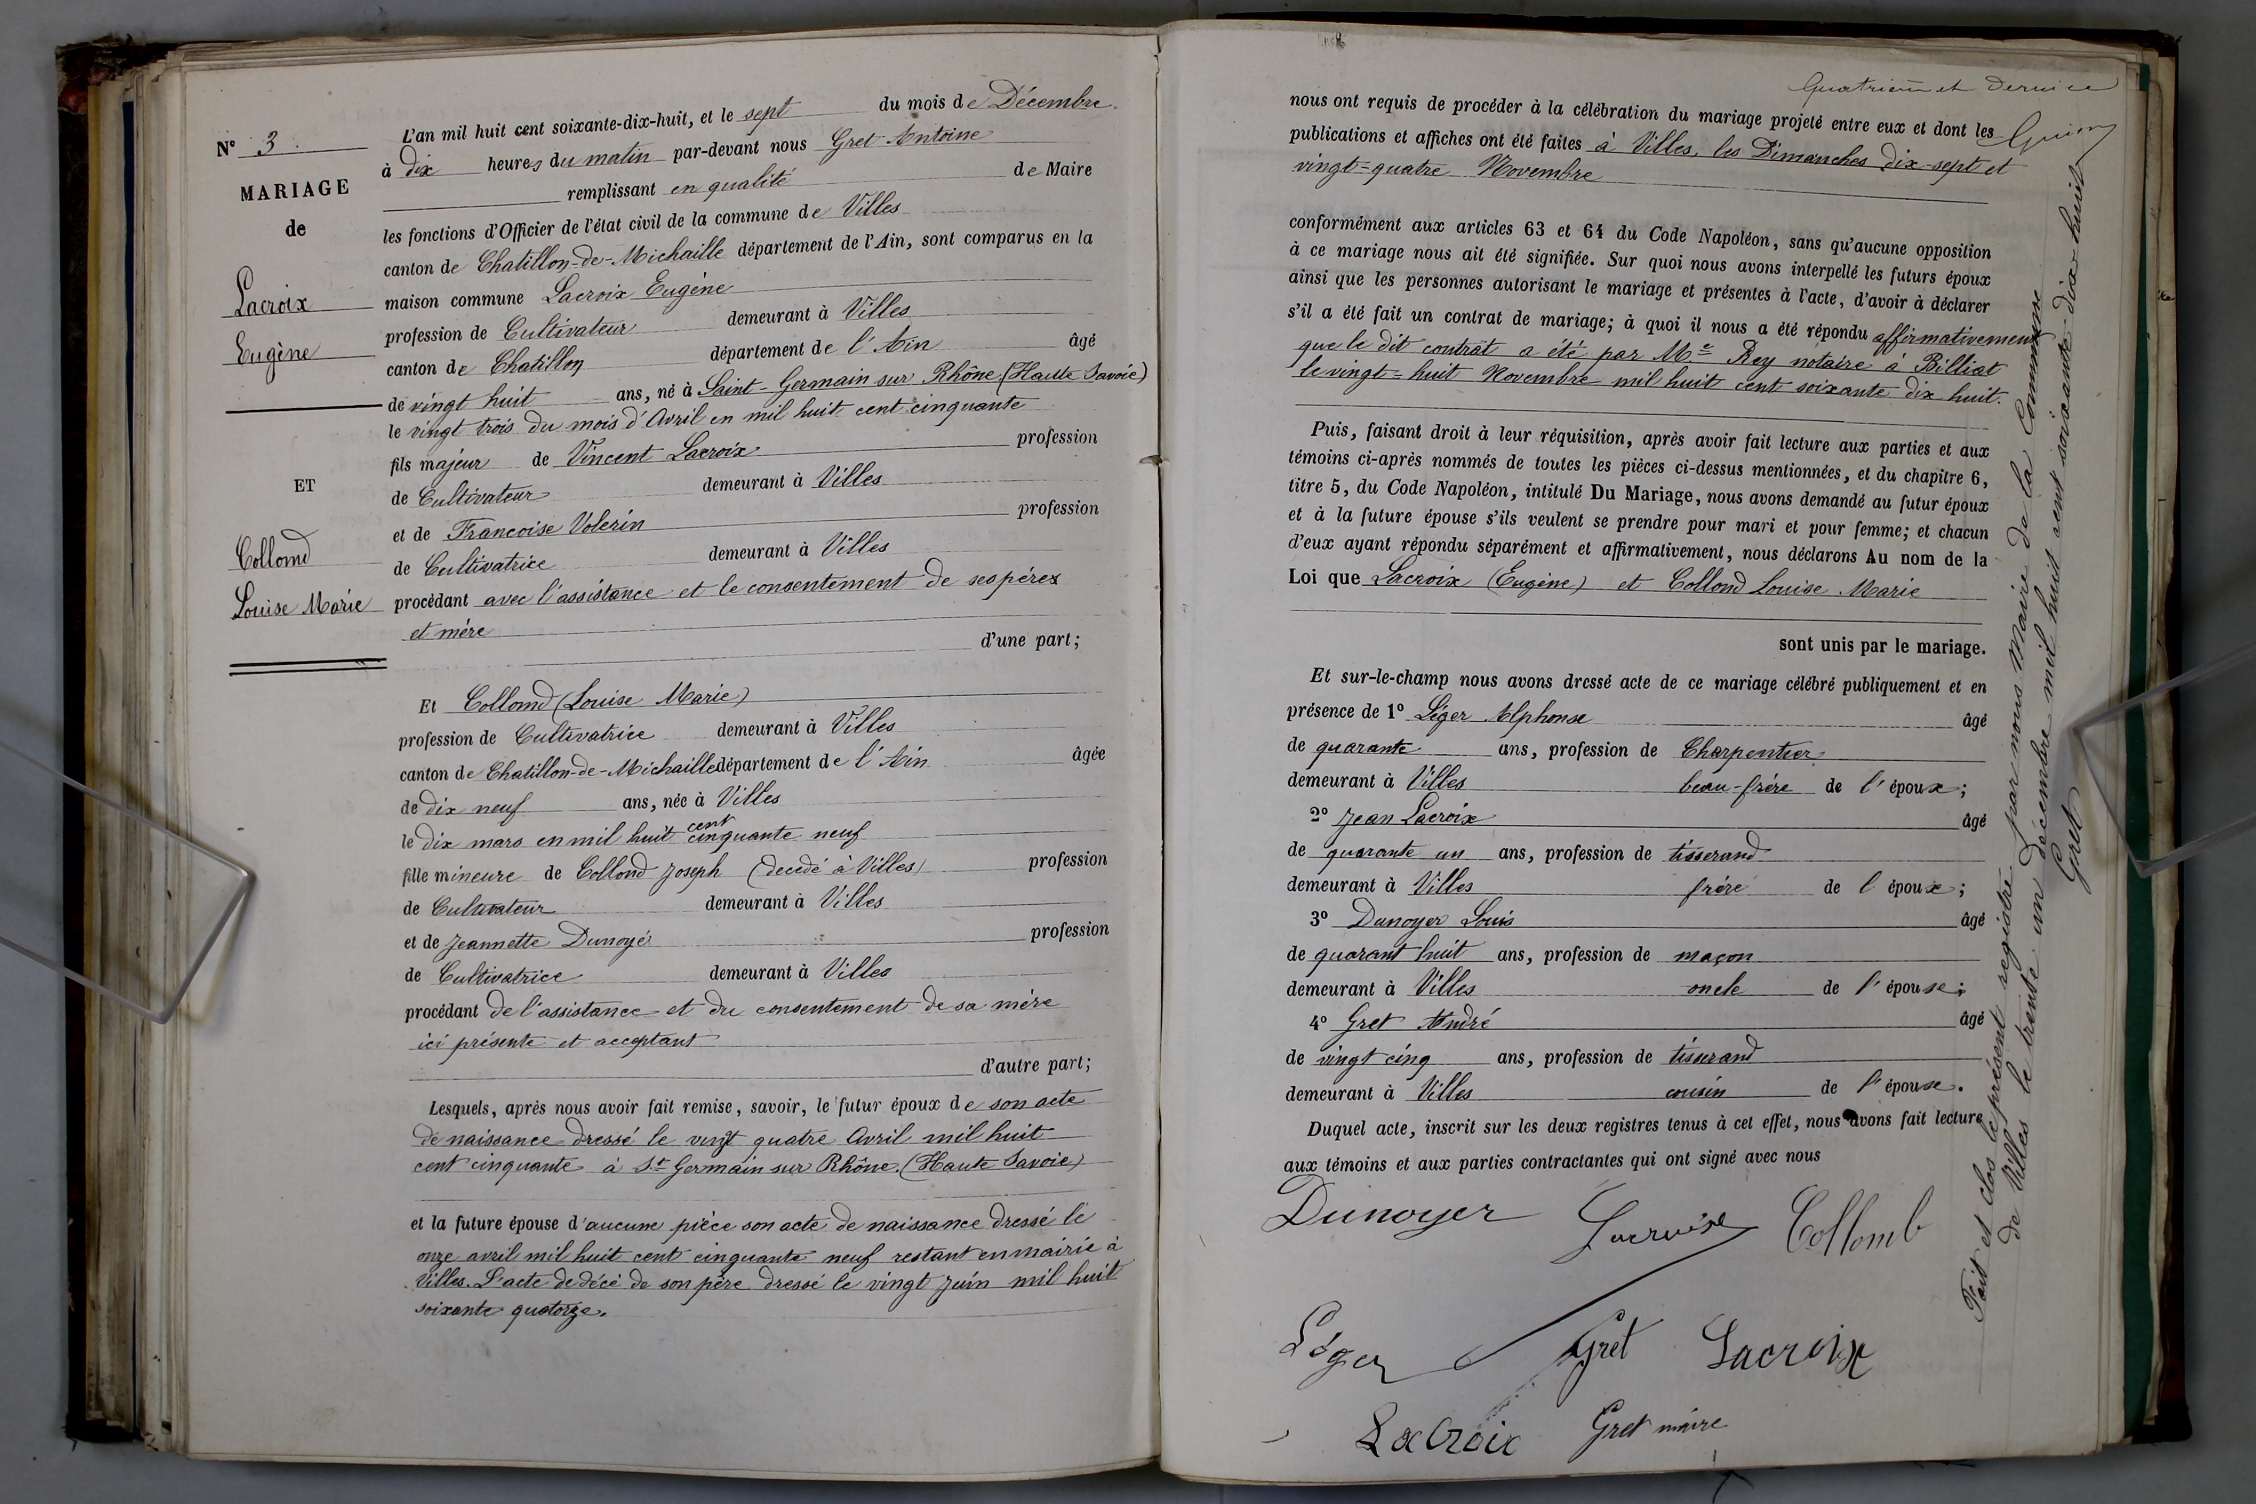 N° 3
MARIAGE
de
Lacroix
Eugène
ET
Collomd
Louise Marie
L'an mil huit cent soixante-dix-huit, et le sept du mois de Décembre
à dix heures du matin par-devant nous Gret Antoine
remplissant en qualité de Maire
les fonctions d'Officier de l'état civil de la commune de Villes
canton de Chatillon-de-Michaille département de l'Ain, sont comparus en la
maison commune Lacroix Eugène
profession de Cultivateur demeurant à Villes
canton de Chatillon département de l'Ain âgé
de vingt huit ans, né à Saint-Germain sur Rhône (Haute Savoie)
le vingt trois du mois d'Avril en mil huit cent cinquante
fils majeur de Vincent Lacroix profession
de Cultivateur demeurant à Villes
et de Francoise Volerin profession
de Cultivatrice demeurant à Villes
procédant avec l'assistance et le consentement de ses pères
et mère
d'une part;
Et Collomd (Louise Marie)
profession de Cultivatrice demeurant à Villes
canton de Chatillon-de-Michaille département de l'Ain âgée
de dix neuf ans, née à Villes
le dix mars en mil huit cent cinquante neuf
fille mineure de Collomd Joseph (decédé à Villes) profession
de Cultivateur demeurant à Villes
et de Jeannette Dunoyé profession
de Cultivatrice demeurant à Villes
procédant de l'assistance et du consentement de sa mère
ici présente et acceptant
d'autre part;
Lesquels, après nous avoir fait remise, savoir, le futur époux de son acte
de naissance dressé le vingt quatre Avril mil huit
cent cinquante à St Germain sur Rhône (Haute Savoie)
et la future épouse d'aucune pièce son acte de naissance dressé le
onze avril mil huit cent cinquante neuf restant en mairie à
Villes. L'acte de décè de son père dressé le vingt juin mil huit
soixante quatorze.
Quatrième et dernier
nous ont requis de procéder à la célébration du mariage projeté entre eux et dont les
publications et affiches ont été faites à Villes, les Dimanches dix-sept et
vingt=quatre Novembre
conformément aux articles 63 et 64 du Code Napoléon, sans qu'aucune opposition
à ce mariage nous ait été signifiée. Sur quoi nous avons interpellé les futurs époux
ainsi que les personnes autorisant le mariage et présentes à l'acte, d'avoir à déclarer
s'il a été fait un contrat de mariage; à quoi il nous a été répondu affirmativement
que le dit contrat a été par Me Rey notaire à Billiat
le vingt=huit Novembre mil huit cent soixante dix huit.
Puis, faisant droit à leur réquisition, après avoir fait lecture aux parties et aux
témoins ci-après nommés de toutes les pièces ci-dessus mentionnées, et du chapitre 6,
titre 5, du Code Napoléon, intitulé Du Mariage, nous avons demandé au futur époux
et à la future épouse s'ils veulent se prendre pour mari et pour femme; et chacun
d'eux ayant répondu séparément et affirmativement, nous déclarons Au nom de la
Loi que Lacroix (Eugène) et Collomd Louise Marie
sont unis par le mariage.
Et sur-le-champ nous avons dressé acte de ce mariage célébré publiquement et en
présence de 1° Léger Alphonse âgé
de quarante ans, profession de Charpentier
demeurant à Villes beau-frère de l'époux;
2° Jean Lacroix âgé
de quarante un ans, profession de tisserand
demeurant à Villes frère de l'époux;
3° Dunoyer Louis âgé
de quarant huit ans, profession de maçon
demeurant à Villes oncle de l'épouse;
4° Gret André âgé
de vingt cinq ans, profession de tisserand
demeurant à Villes cousin de l'épouse.
Duquel acte, inscrit sur les deux registres tenus à cet effet, nous avons fait lecture
aux témoins et aux parties contractantes qui ont signé avec nous
Dunoyer Lacroix Collomb
Léger Gret Lacroix
Lacroix Gret maire
Fait et clos le présent registre par nous Maire de la Commune
de Villes le trente un Décembre mil huit cent soixante-dix-huit
Gret